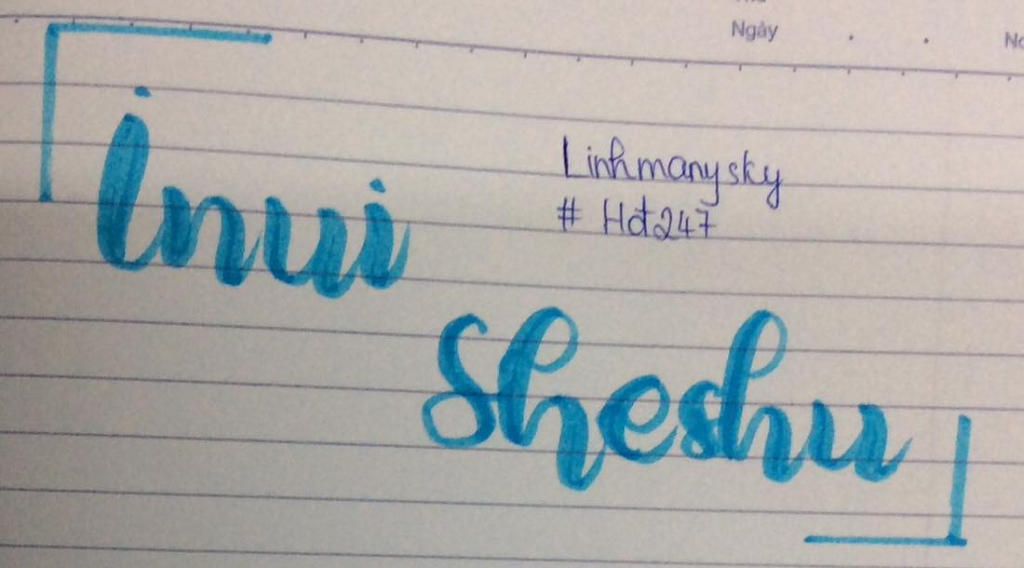 Ngày
inui
Linhmanysky
# Hđ247
Sheshu